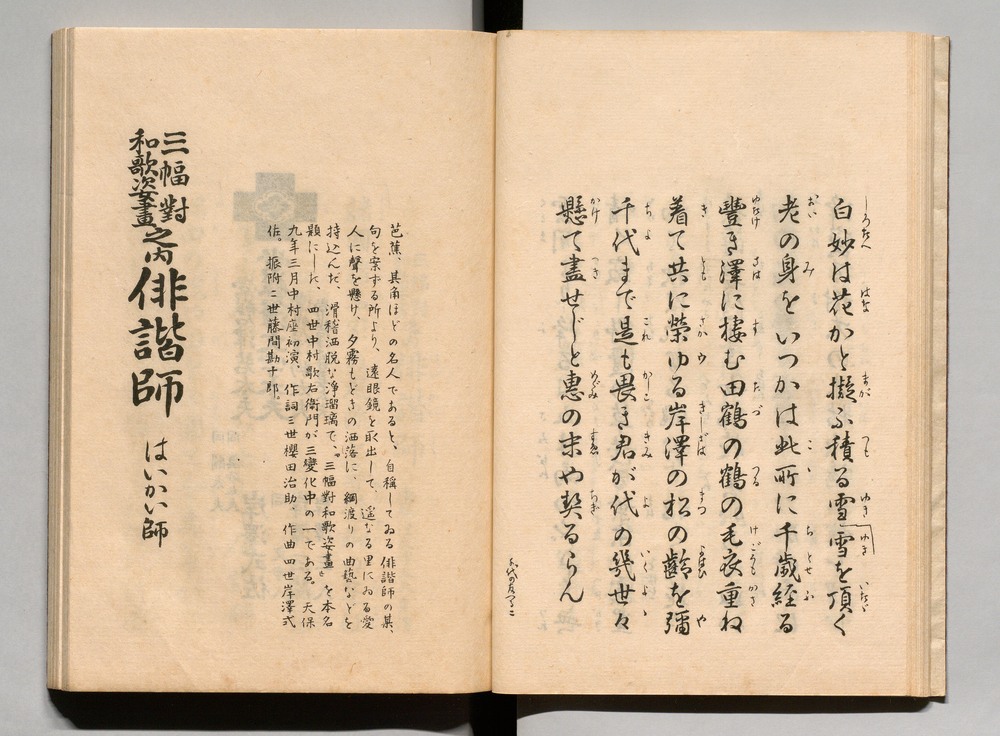 白妙は花かと擬ふ積る雪雪を頂く
老の身をいつかは此所に千歳経る
豐き澤に棲む田鶴の鶴の毛衣重ね
着て共に榮ゆる岸澤の松の齢を彌
千代まで是も畏き君が代の幾世々
懸て盡せじと惠の末や契るらん
芭蕉、其角ほどの名人であると、自稱してゐる俳諧師の某、
句を案ずる所より、遠眼鏡を取出して、遥なる里にゐる愛
人に聲を懸け、夕霧もどきの洒落に、綱渡りの曲藝などを
持込んだ、滑稽洒脱な淨瑠璃で、『三幅對和歌姿畫』を本名
題にした、四世中村歌右衛門が三變化中の一である。天保
九年三月中村座初演、作詞三世櫻田治助、作曲四世岸澤式
佐。振附二世藤間勘十郎。
三幅對
和歌姿畫之内俳諧師
はいかい師